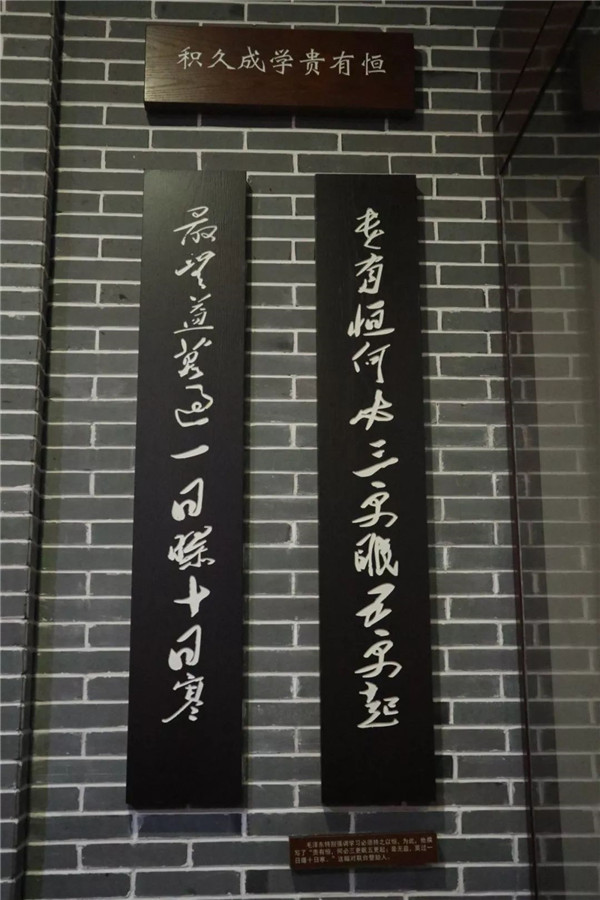 积久成学贵有恒
贵有恒何必三更眠五更起
最无益莫过一日曝十日寒
毛泽东特别强调学习必须持之以恒，为此，他撰
写了“贵有恒，何必三更眠五更起；最无益，莫过一
日曝十日寒。”这幅对联自警励人。